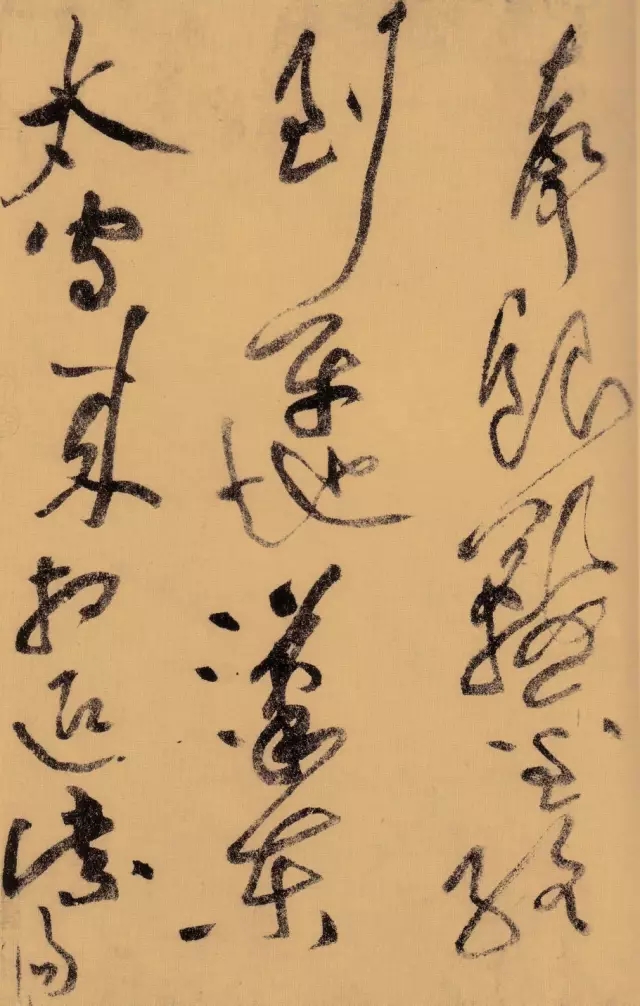 聲銀鞍金絡
到平地漢東
太守來相迎紫陽